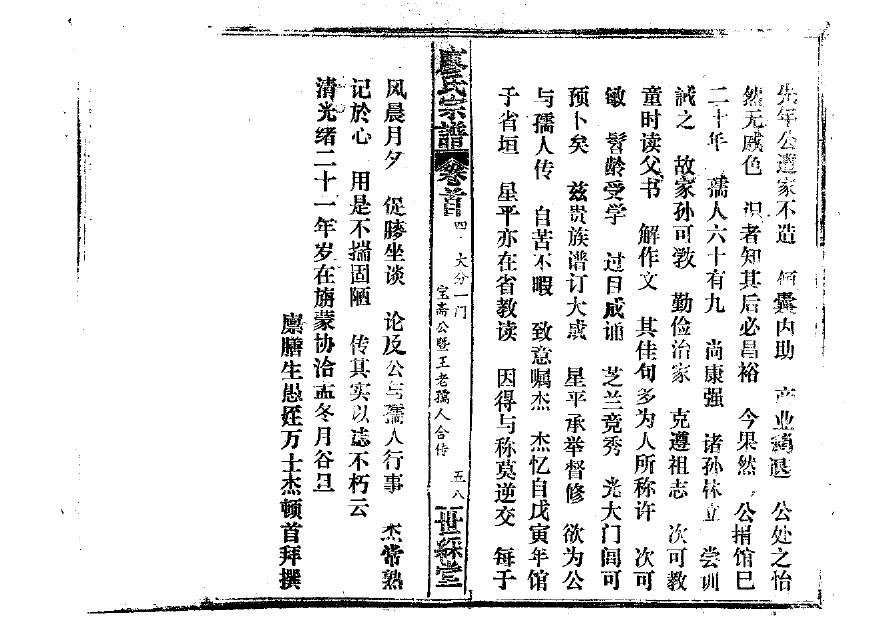 先年公遭家不造 倾囊内助 产业满退 公处之怡
然无戚色 识者知其后必昌裕 今果然 公捐馆已
二十年 孺人六十有九 尚康强 诸孙林立 尝训
诫之 故家孙可教 勤俭治家 克遵祖志 次可教
童时读父书 解作文 其佳句多为人所称许 次可
敏 髫龄受学 过目成诵 芝兰竞秀 光大门闾可
预卜矣 兹贵族谱订大成 星平承举督修 欲为公
与孺人传 自苦不暇 致意嘱杰 杰忆自戊寅年馆
于省垣 星平亦在省教读 因得与称莫逆交 每于
廖氏宗谱 卷首 四·大分一门 宝斋公暨王老孺人合传 五八 世䌽堂
风晨月夕 促膝坐谈 论及公与孺人行事 杰常熟
记於心 用是不揣固陋 传其实以志不朽云
清光绪二十一年岁在旃蒙协洽孟冬月谷旦
廪膳生愚姪万士杰顿首拜撰